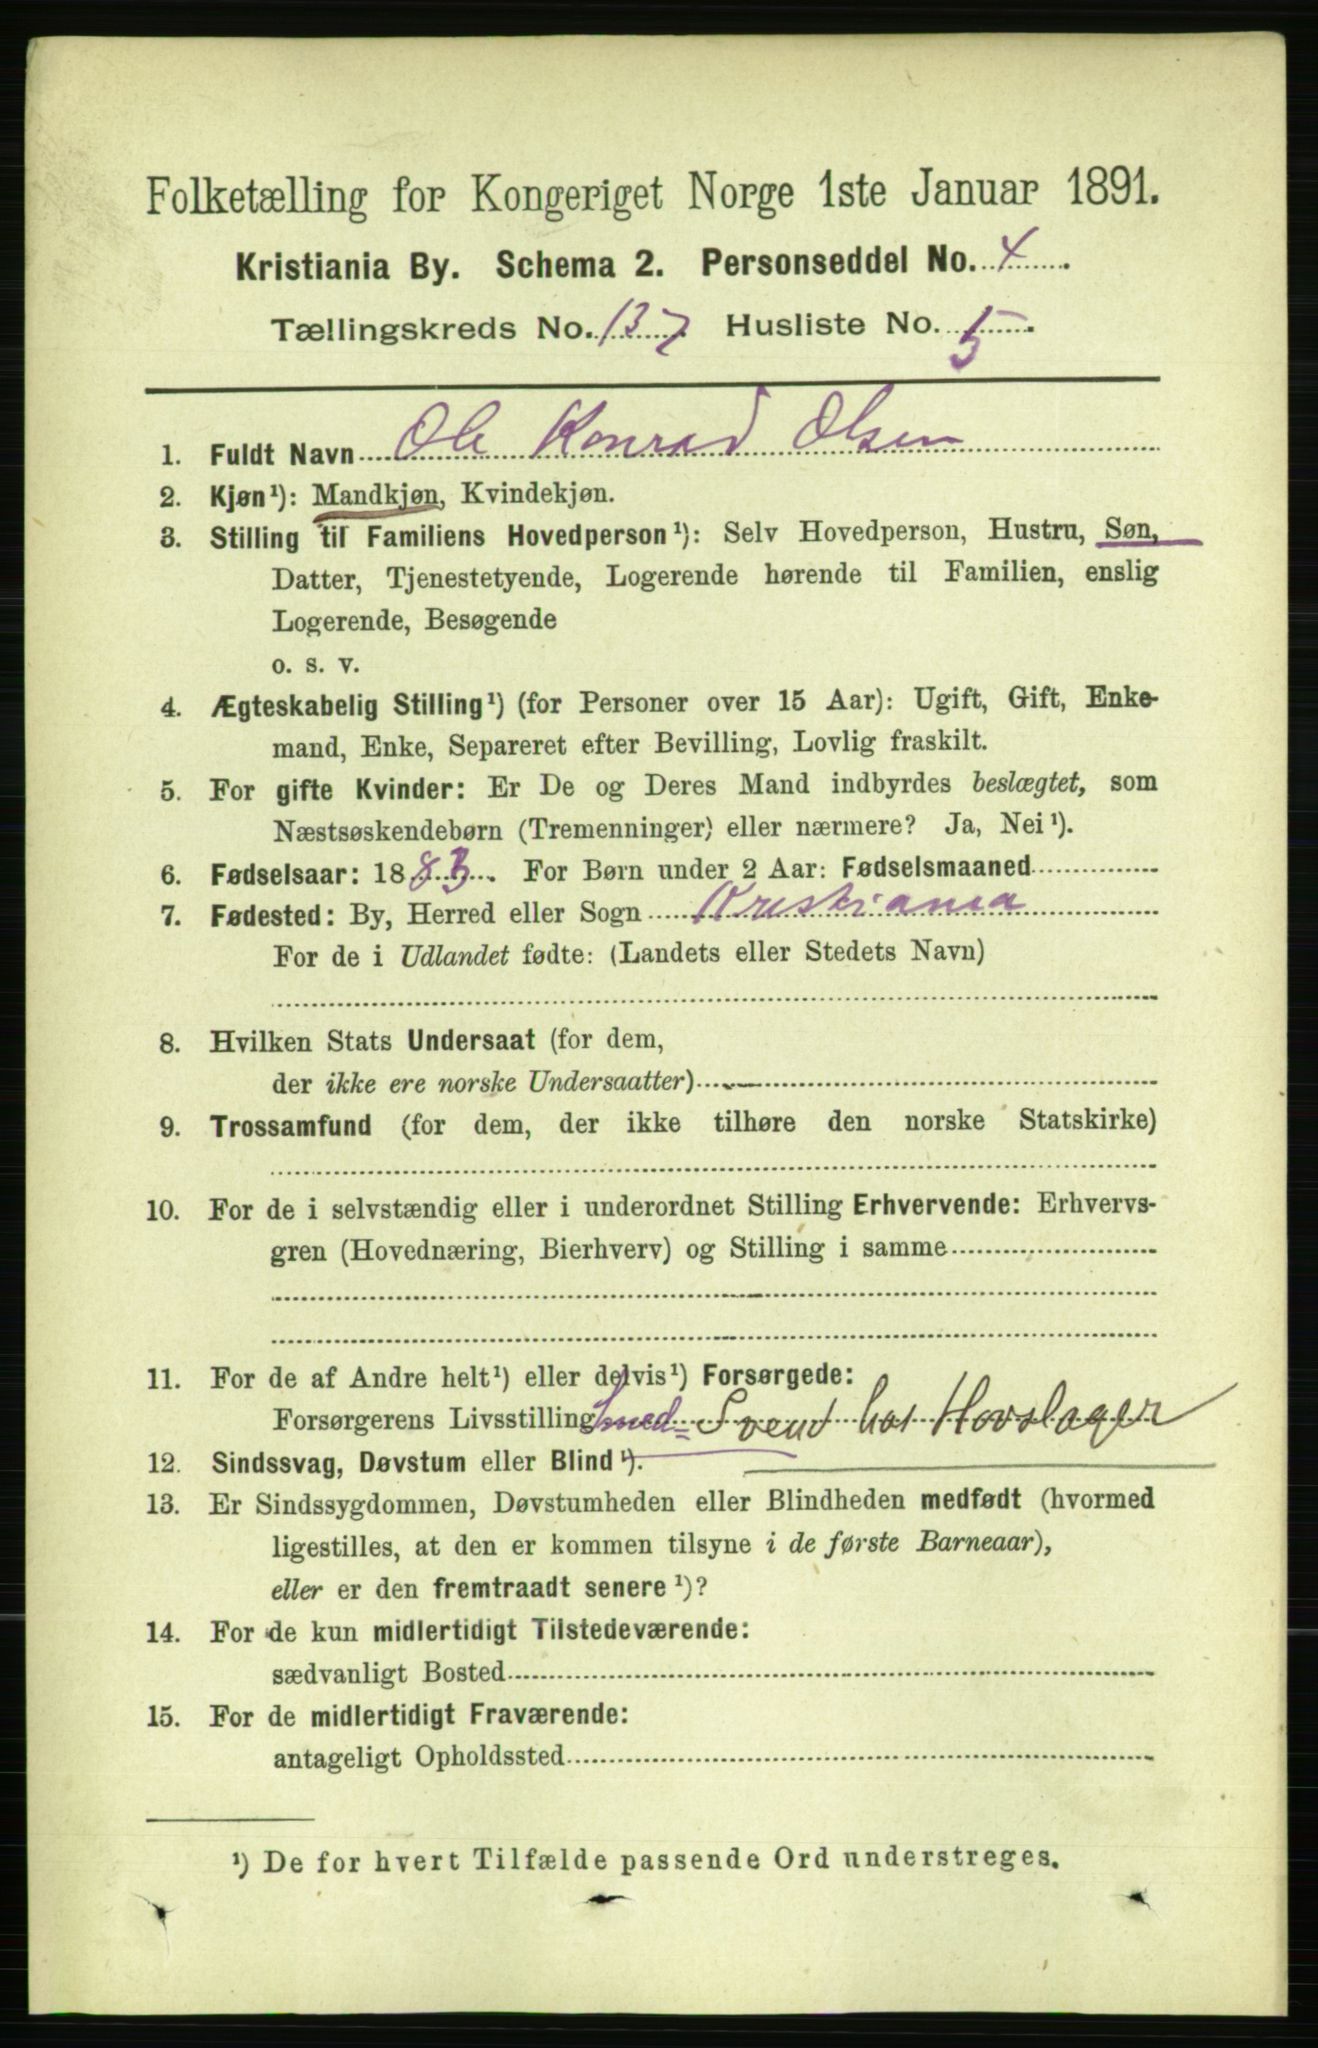 Folketælling for Kongeriget Norge 1ste Januar 1891.
Kristiania By. Schema 2. Personseddel No. 4.
Tællingskreds No. 137. Husliste No. 5.
1. Fuldt Navn Ole Konrad Olsen
2. Kjøn¹): Mandkjøn, Kvindekjøn.
3. Stilling til Familiens Hovedperson¹): Selv Hovedperson, Hustru, Søn,
Datter, Tjenestetyende, Logerende hørende til Familien, enslig
Logerende, Besøgende
o. s. v.
4. Ægteskabelig Stilling¹) (for Personer over 15 Aar): Ugift, Gift, Enke-
mand, Enke, Separeret efter Bevilling, Lovlig fraskilt.
5. For gifte Kvinder: Er De og Deres Mand indbyrdes beslægtet, som
Næstsøskendebørn (Tremenninger) eller nærmere? Ja, Nei¹).
6. Fødselsaar: 1883. For Børn under 2 Aar: Fødselsmaaned
7. Fødested: By, Herred eller Sogn Kristiania
For de i Udlandet fødte: (Landets eller Stedets Navn)
8. Hvilken Stats Undersaat (for dem,
der ikke ere norske Undersaatter)
9. Trossamfund (for dem, der ikke tilhøre den norske Statskirke)
10. For de i selvstændig eller i underordnet Stilling Erhvervende: Erhvervs-
gren (Hovednæring, Bierhverv) og Stilling i samme
11. For de af Andre helt¹) eller delvis¹) Forsørgede:
Forsørgerens Livsstilling Smed= Svend hos Hovslager
12. Sindssvag, Døvstum eller Blind¹).
13. Er Sindssygdommen, Døvstumheden eller Blindheden medfødt (hvormed
ligestilles, at den er kommen tilsyne i de første Barneaar),
eller er den fremtraadt senere¹)?
14. For de kun midlertidigt Tilstedeværende:
sædvanligt Bosted
15. For de midlertidigt Fraværende:
antageligt Opholdssted
¹) De for hvert Tilfælde passende Ord understreges.